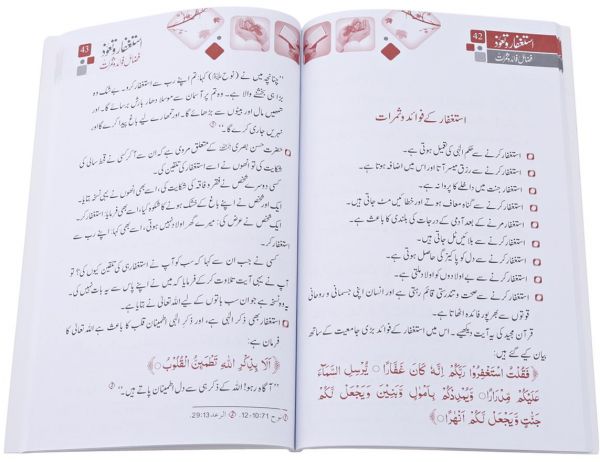 42
استغفار و تعوذ
فضائل فوائد و ثمرات
استغفار کے فوائد و ثمرات
استغفار کرنے سے حکم الٰہی کی تعمیل ہوتی ہے۔
استغفار کرنے سے رزق میسر آتا اور اس میں اضافہ ہوتا ہے۔
استغفار جنت میں داخلے کا پروانہ ہے۔
استغفار کرنے سے گناہ معاف ہوتے اور خطائیں مٹ جاتی ہیں۔
استغفار مرنے کے بعد آدمی کے درجات کی بلندی کا باعث ہے۔
استغفار کرنے سے بلائیں ٹل جاتی ہیں۔
استغفار کرنے سے دل کو پاکیزگی حاصل ہوتی ہے۔
استغفار کرنے سے بے اولادوں کو اولاد ملتی ہے۔
استغفار کرنے سے صحت و تندرستی قائم رہتی ہے اور انسان اپنی جسمانی و روحانی
قوتوں سے بھرپور فائدہ اٹھاتا ہے۔
قرآن مجید کی یہ آیت دیکھیے۔ اس میں استغفار کے فوائد بڑی جامعیت کے ساتھ
بیان کیے گئے ہیں:
﴿فَقُلْتُ اسْتَغْفِرُوْا رَبَّكُمْ اِنَّهٗ كَانَ غَفَّارًا ۝ يُّرْسِلِ السَّمَآءَ
عَلَيْكُمْ مِّدْرَارًا ۝ وَّيُمْدِدْكُمْ بِاَمْوَالٍ وَّبَنِيْنَ وَيَجْعَلْ لَّكُمْ
جَنّٰتٍ وَّيَجْعَلْ لَّكُمْ اَنْهٰرًا ۝﴾
استغفار و تعوذ
فضائل فوائد و ثمرات
43
”چنانچہ میں نے (نوح علیہ السلام) کہا: تم اپنے رب سے استغفار کرو۔ بے شک وہ
بڑا ہی بخشنے والا ہے۔ وہ تم پر آسمان سے موسلا دھار بارش برسائے گا۔ اور
تمھیں مال اور بیٹوں سے بڑھائے گا۔ اور تمھارے لیے باغ پیدا کرے گا اور
نہریں جاری کرے گا۔“ ①
حضرت حسن بصری رحمہ اللہ کے متعلق مروی ہے کہ ان سے آ کر کسی نے قحط سالی کی
شکایت کی تو انھوں نے اسے استغفار کی تلقین کی۔
کسی دوسرے شخص نے فقر و فاقہ کی شکایت کی، اسے بھی انھوں نے یہی نسخہ بتایا۔
ایک اور شخص نے اپنے باغ کے خشک ہونے کا شکوہ کیا، اسے بھی فرمایا: استغفار کر۔
ایک شخص نے عرض کی: میرے گھر اولاد نہیں ہوتی، اسے بھی کہا: اپنے رب سے
استغفار کر۔
کسی نے جب ان سے کہا کہ سب کو آپ نے استغفار ہی کی تلقین کیوں کی؟ تو
آپ نے یہی آیت تلاوت کر کے فرمایا کہ میں نے اپنے پاس سے یہ بات نہیں کی۔
یہ وہ نسخہ ہے جو ان سب باتوں کے لیے اللہ تعالیٰ نے بتایا ہے۔
استغفار بھی ذکر الٰہی ہے، اور ذکر الٰہی اطمینان قلب کا باعث ہے اللہ تعالیٰ کا
فرمان ہے:
﴿اَلَا بِذِكْرِ اللّٰهِ تَطْمَىِٕنُّ الْقُلُوْبُ ۝﴾
”آگاہ رہو! اللہ کے ذکر ہی سے دل اطمینان پاتے ہیں۔“ ②
① نوح 71:10-12. ② الرعد 29:13.